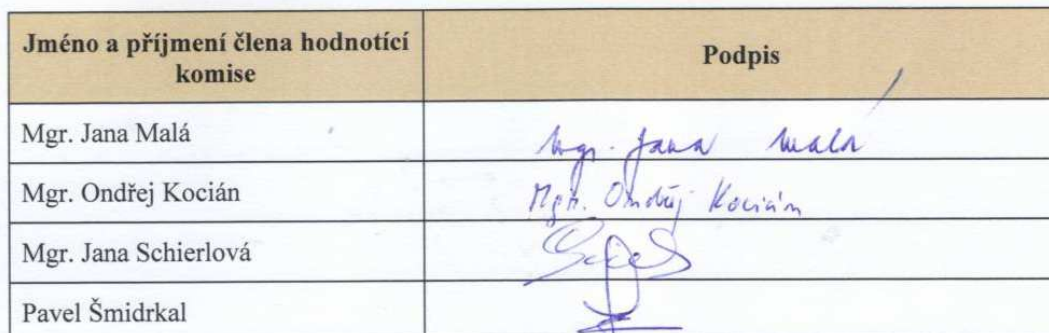 Jméno a příjmení člena hodnotící
komise
Podpis
Mgr. Jana Malá
Mgr. Jana Malá
Mgr. Ondřej Kocián
Mgr. Ondřej Kocián
Mgr. Jana Schierlová
Pavel Šmidrkal